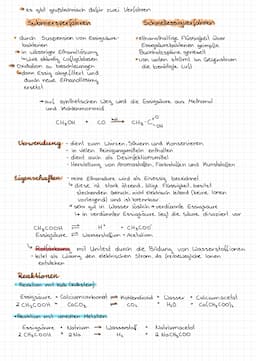 → es gibt großtechnisch dafür zwei Verfahren
Submersverfahren
Schnellessigverfahren
• durch Suspension von Essigsäure-
bakterien
• in wässriger Ethanollösung
→ wie ständig Luft
• Oxidation zu beschleunigen
→ dann Essig abgefiltert und
durch neue Ethanollösung
ersetzt
• ethanolhaltige Flüssigkeit über
Essigsäurebakterien geimpfte
Buchenholzspäne gerieselt
• von unten strömt im Gegenstrom
die benötigte Luft
→ auf synthetischen Weg wird die Essigsäure aus Methanol
und Kohlenmonoxid
CH₃OH + CO → CH₃-C
O
OH
Verwendung: - dient zum Würzen, Säuern und Konservieren
- in vielen Reinigungsmitteln enthalten
- dient auch als Desinfektionsmittel
- Herstellung von Aromastoffen, Farbstoffen und Kunststoffen
Eigenschaften: - reine Ethansäure wird als Eisessig bezeichnet
↳ diese ist stark ätzend, klare Flüssigkeit, besitzt
stechenden Geruch, nicht elektrisch leitend (keine Ionen
vorliegend) und ist brennbar
• sehr gut in Wasser löslich → verdünnte Essigsäure
↳ in verdünnter Essigsäure liegt die Säure dissoziiert vor
CH₃COOH ⇌ H⁺ + CH₃COO⁻
Essigsäure ⇌ Wasserstoffion + Acetation
mit Unitest durch die Bildung von Wasserstoffionen
- leitet als Lösung den elektrischen Strom, da freibewegliche Ionen
entstehen
Reaktionen
• Reaktion mit Kalk (Kalkstein)
Essigsäure + Calciumcarbonat → Kohlendioxid + Wasser + Calciumacetat
2 CH₃COOH + CaCO₃ → CO₂ + H₂O + Ca(CH₃COO)₂
• Reaktion mit unedlen Metallen
Essigsäure + Natrium → Wasserstoff + Natriumacetat
2 CH₃COOH + 2 Na → H₂ + 2 NaCH₃COO